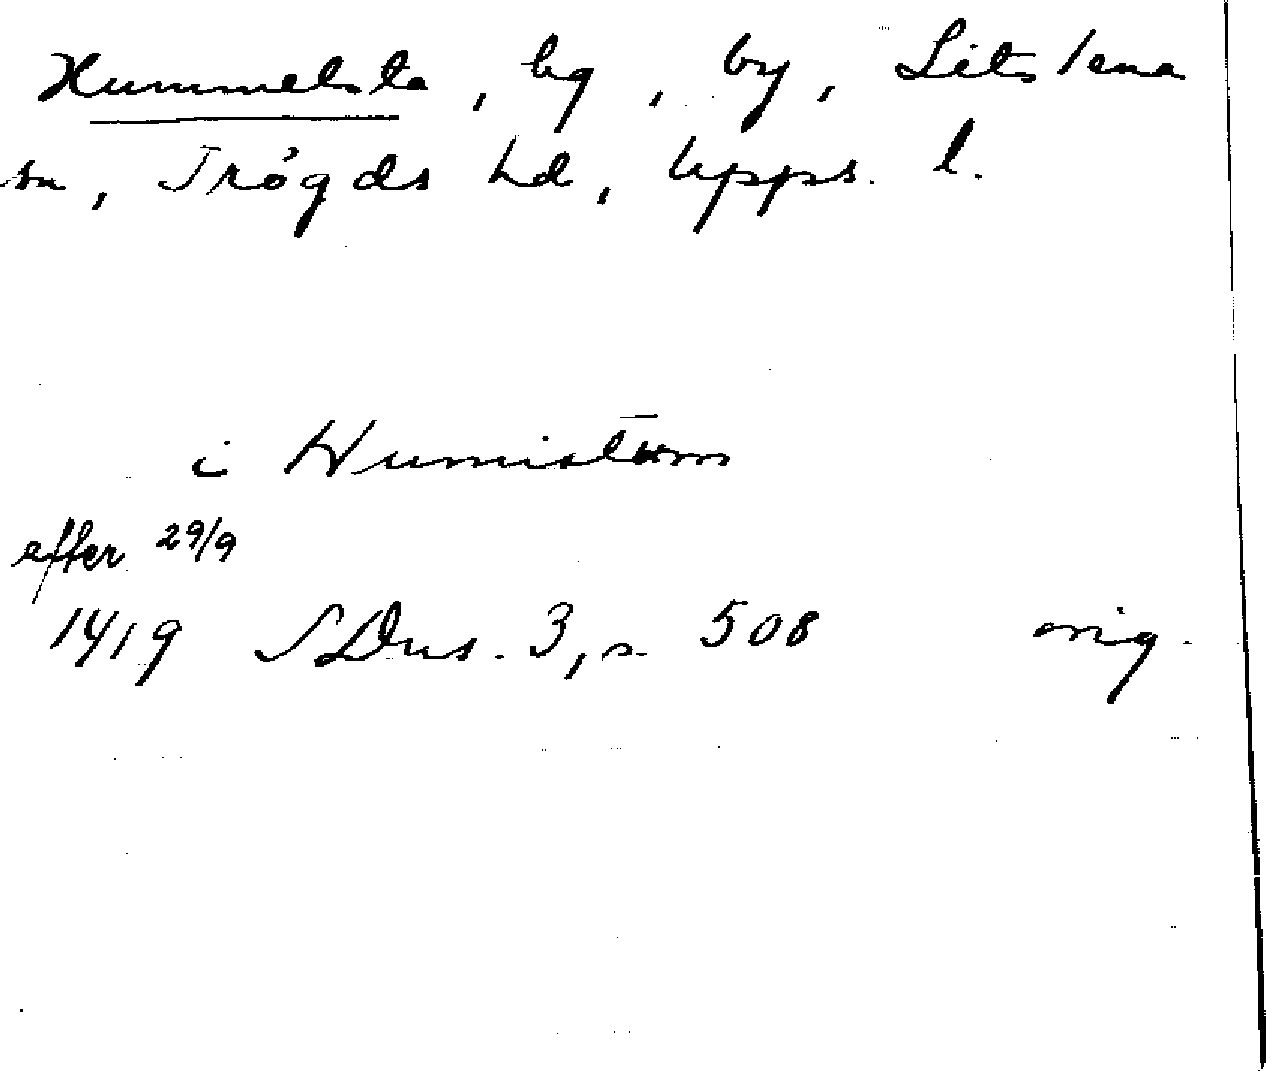 Hummelsta, hg, by, Litslena
sn, Trögds hd, Upps. l.
i Humistūm
efter 29/9
1419 SDns. 3, s. 508 orig.